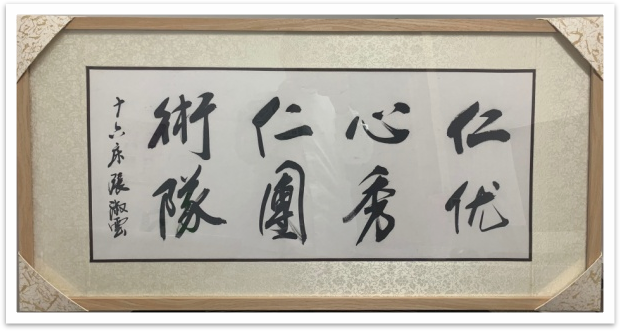 仁心仁術
优秀團隊
十六床張淑雲